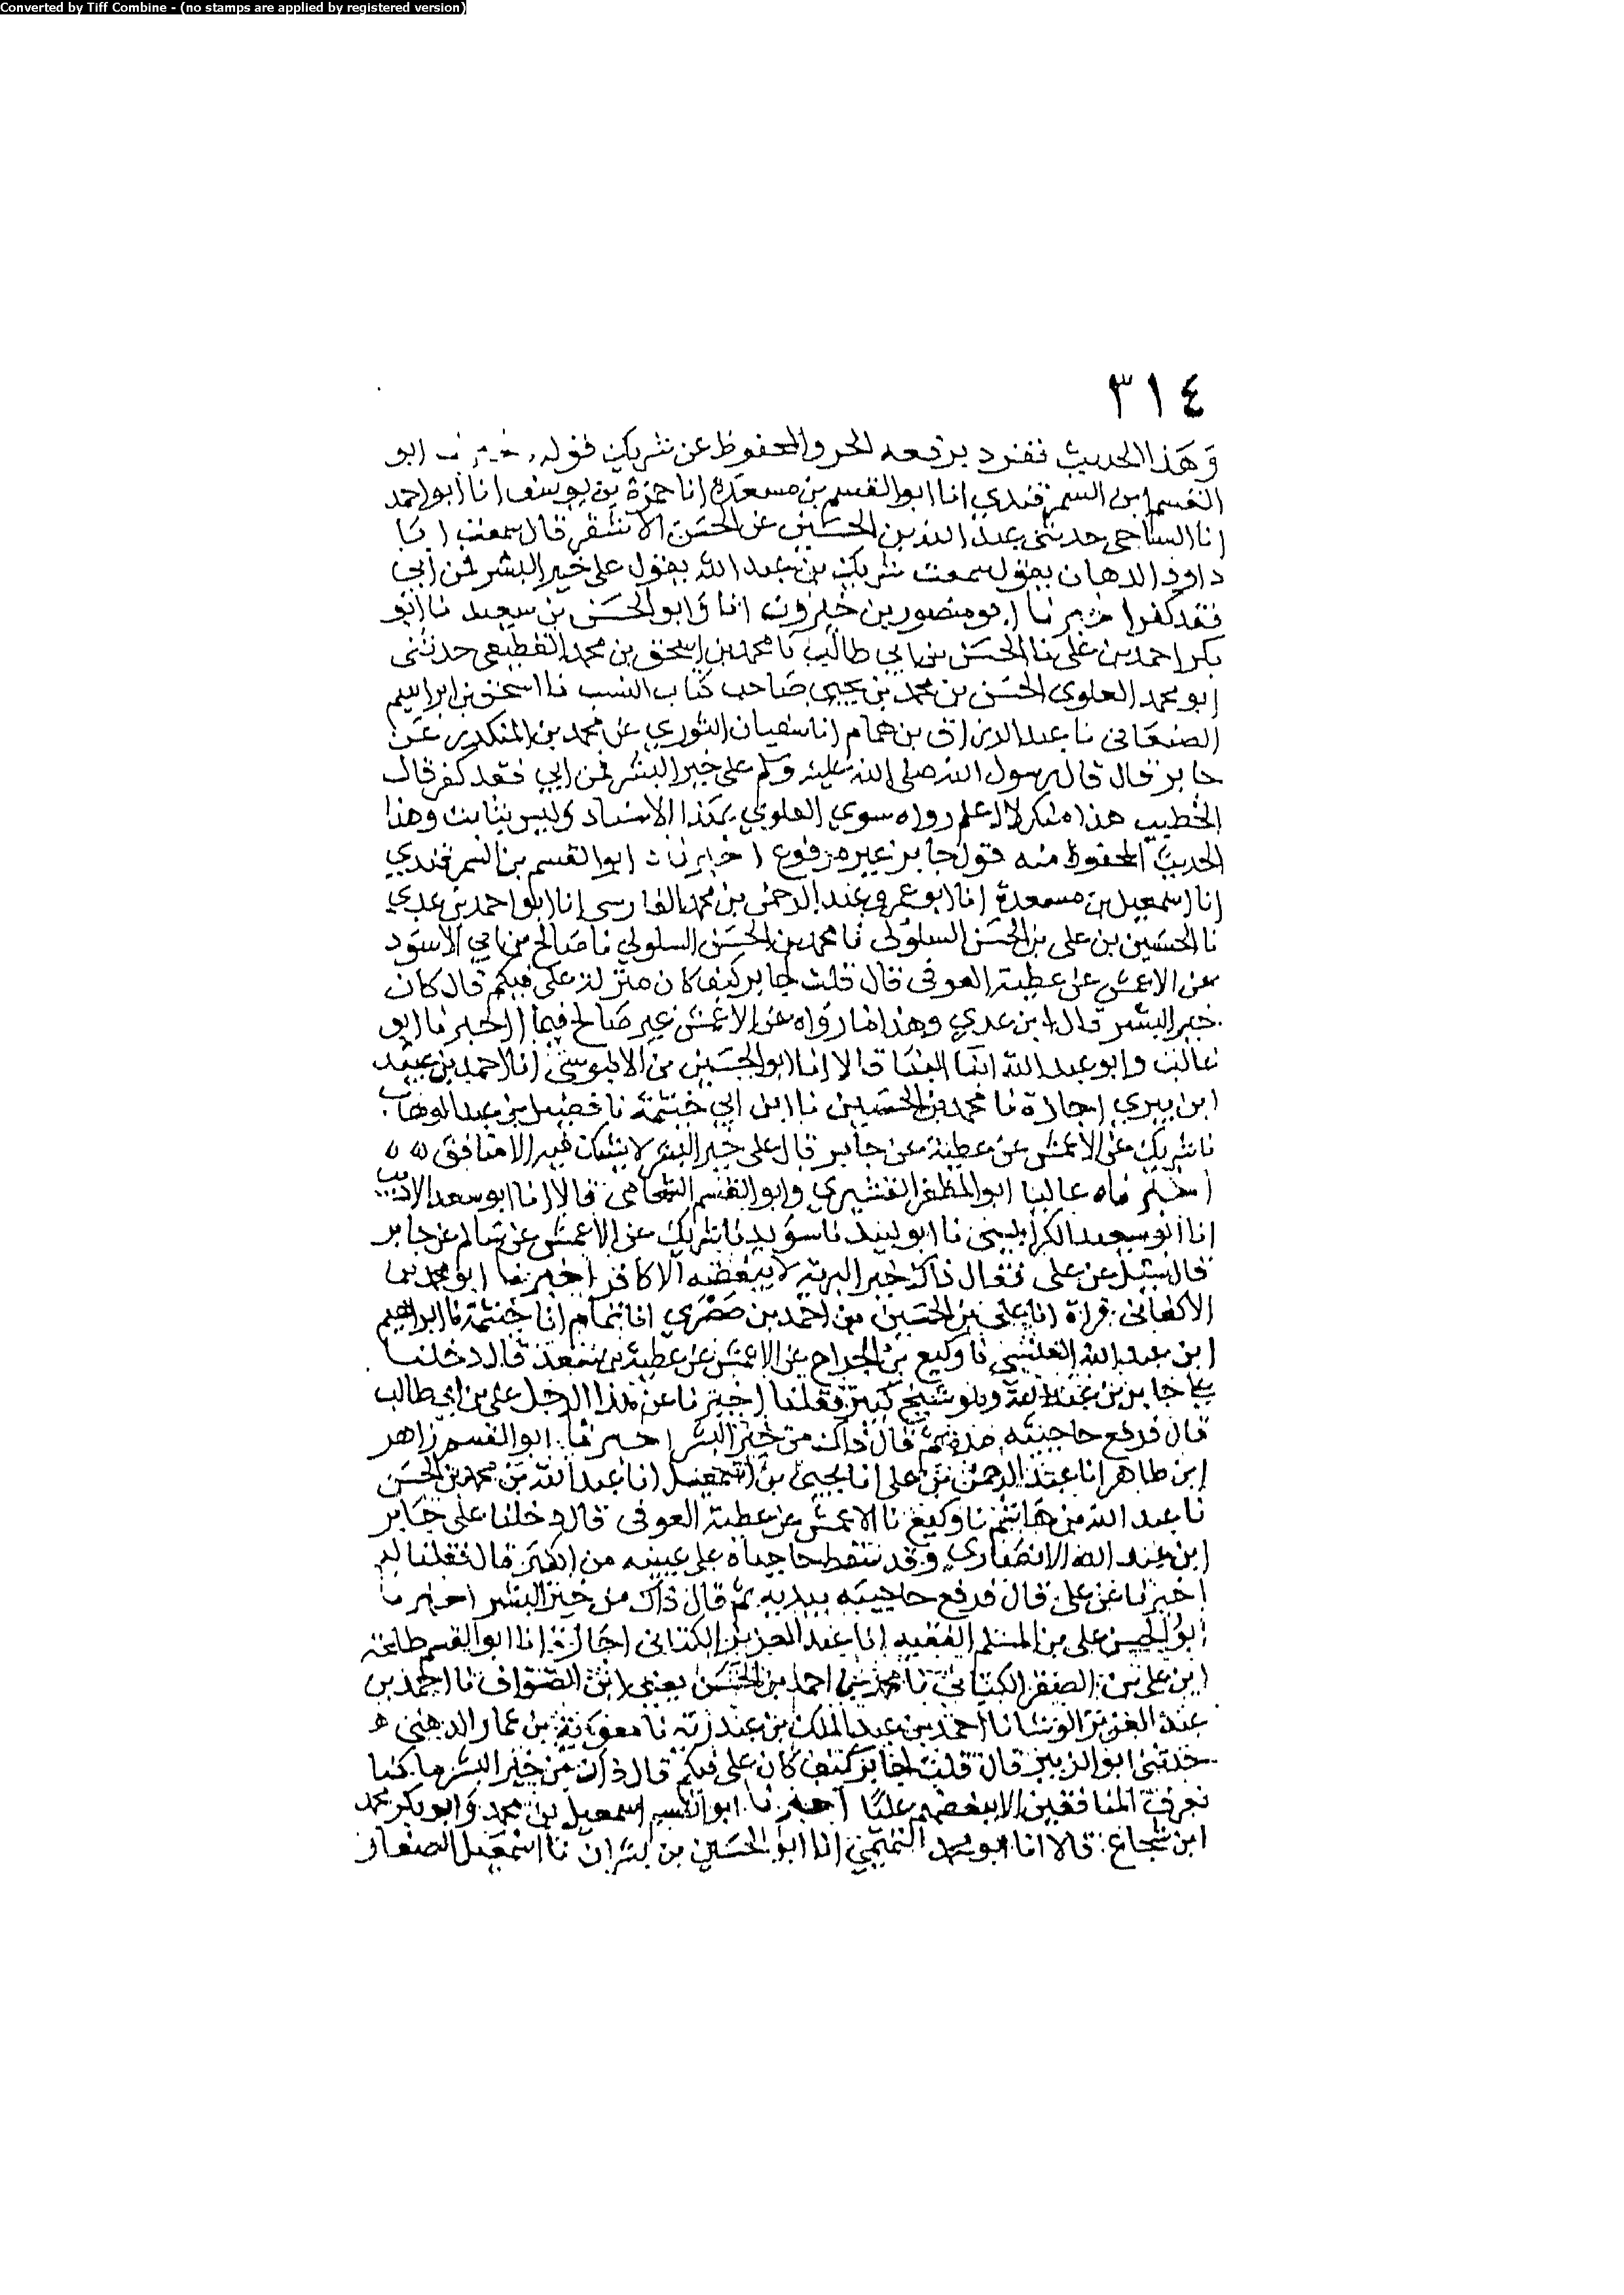 Converted by Tiff Combine - (no stamps are applied by registered version)
٣١٤
وهذا الحديث تفرد برفعه الحر والمحفوظ عن شريك قوله ابو
القسم ابن السمرقندي انا ابو القسم بن مسعدة انا حمزة بن يوسف انا ابو احمد
انا الساجي حدثني عبد الله بن الحسين عن الحسن الاشقر قال سمعت ابا
داود الدهان يقول سمعت شريك بن عبد الله يقول علي خير البشر فمن ابي
فقد كفر اخبرنا ابو منصور بن خيرون انا وابو الحسن بن سعيد نا ابو
بكر احمد بن علي نا الحسن بن ابي طالب نا محمد بن اسحق بن محمد القطيعي حدثني
ابو محمد العلوي الحسن بن محمد بن يحيى صاحب كتاب النسب نا اسحق بن ابراهيم
الصنعاني نا عبد الرزاق بن همام انا سفيان الثوري عن محمد بن المنكدر عن
جابر قال قال رسول الله صلى الله عليه وسلم علي خير البشر فمن ابي فقد كفر قال
الخطيب هذا منكر لا اعلم رواه سوي العلوي بهذا الاسناد وليس بثابت وهذا
الحديث المحفوظ منه قول جابر غير مرفوع اخبرنا ابو القسم بن السمرقندي
انا اسمعيل بن مسعدة انا ابو عمرو عبد الرحمن بن محمد الفارسي انا ابو احمد بن عدي
نا الحسين بن علي بن الحسن السلولي نا محمد بن الحسن السلولي نا صالح بن ابي الاسود
عن الاعمش عن عطية العوفي قال قلت لجابر كيف كان منزلة علي فيكم قال كان
خير البشر قال ابن عدي وهذا ما رواه عن الاعمش غير صالح فيما اخبرنا ابو
غالب وابو عبد الله ابنا البنا قالا انا ابو الحسين بن الابنوسي انا احمد بن عبيد
ابن بيري اجازة نا محمد بن الحسين نا ابن ابي خيثمة نا فضيل بن عبد الوهاب
نا شريك عن الاعمش عن عطية عن جابر قال علي خير البشر لا يشك فيه الا منافق
اخبرناه عاليا ابو المظفر القشيري وابو القسم الشحامي قالا انا ابو سعد الاديب
انا ابو سعيد الكرابيسي نا ابو لبيد نا سويد نا شريك عن الاعمش عن سالم عن جابر
قال سئل عن علي فقال ذاك خير البرية لا يبغضه الا كافر اخبرنا ابو محمد بن
الاكفاني قراة انا علي بن الحسين بن احمد بن صصري انا تمام انا خيثمة نا ابراهيم
ابن عبد الله العبسي نا وكيع بن الجراح عن الاعمش عن عطية بن سعد قال دخلنا
علي جابر بن عبد الله وهو شيخ كبير فقلنا اخبرنا عن هذا الرجل علي بن ابي طالب
قال فرفع حاجبيه ثم قال ذاك من خير البشر اخبرنا ابو القسم زاهر
ابن طاهر انا عبد الرحمن بن علي انا يحيى بن اسمعيل انا عبد الله بن محمد بن الحسن
نا عبد الله بن هاشم نا وكيع نا الاعمش عن عطية العوفي قال دخلنا علي جابر
ابن عبد الله الانصاري وقد سقط حاجباه علي عينيه من الكبر قال فقلنا له
اخبرنا عن علي قال فرفع حاجبيه بيديه ثم قال ذاك من خير البشر اخبرنا
ابو الحسن علي بن المسلم الفقيه انا عبد العزيز الكتاني اجازة انا ابو القسم طلحة
ابن علي بن الصقر الكتاني نا محمد بن احمد بن الحسن يعني ابن الصواف نا احمد بن
عبد العزيز الوشا نا احمد بن عبد الملك بن عبد ربه نا معوية بن عمار الدهني
حدثني ابو الزبير قال قلت لجابر كيف كان علي فيكم قال ذاك من خير البشر ما كنا
نعرف المنافقين الا ببغضهم عليا اخبرنا ابو القسم اسمعيل بن محمد وابو بكر محمد
ابن شجاع قالا انا ابو محمد التميمي انا ابو الحسين بن بشران نا اسمعيل الصفار